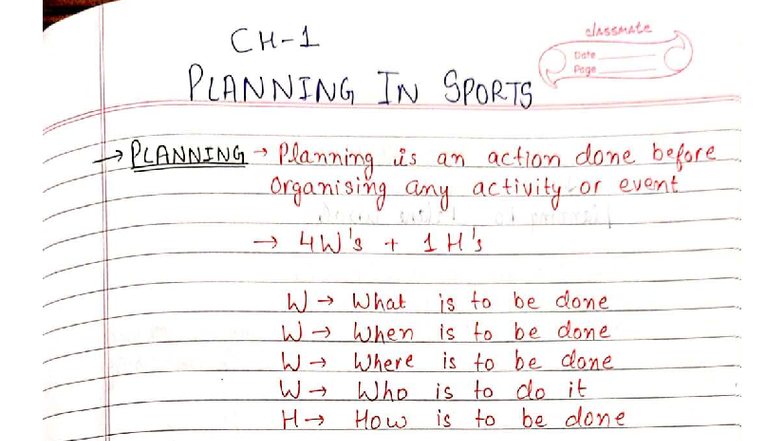 CH-1
classmate
Date
Page
PLANNING IN SPORTS
→ PLANNING → Planning is an action done before
organising any activity or event
→ 4W's + 1H's
W → What is to be done
W → When is to be done
W → Where is to be done
W → Who is to do it
H → How is to be done